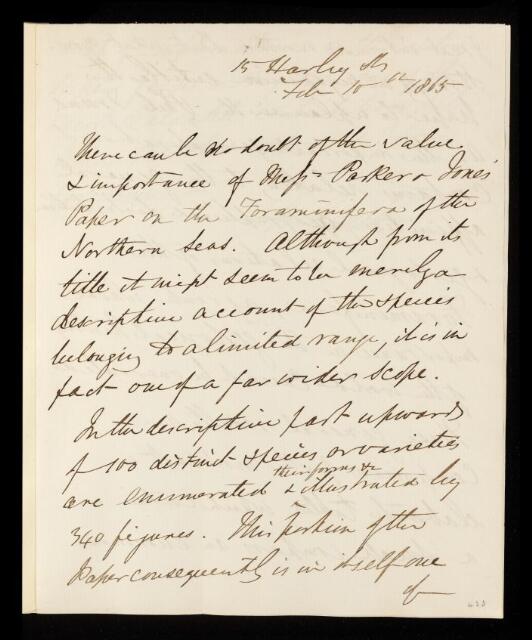 15 Harley St
Feb 10th 1865
There can be no doubt of the value
& importance of Messrs Parker & Jones'
Paper on the Foraminifera of the
Northern Seas. Although from its
title it might seem to be merely a
descriptive account of the species
belonging to a limited range, it is in
fact one of a far wider scope.
In the descriptive part upwards
of 100 distinct species or varieties
are enumerated & their forms &c illustrated by
340 figures. This portion of the
Paper consequently is in itself one
of